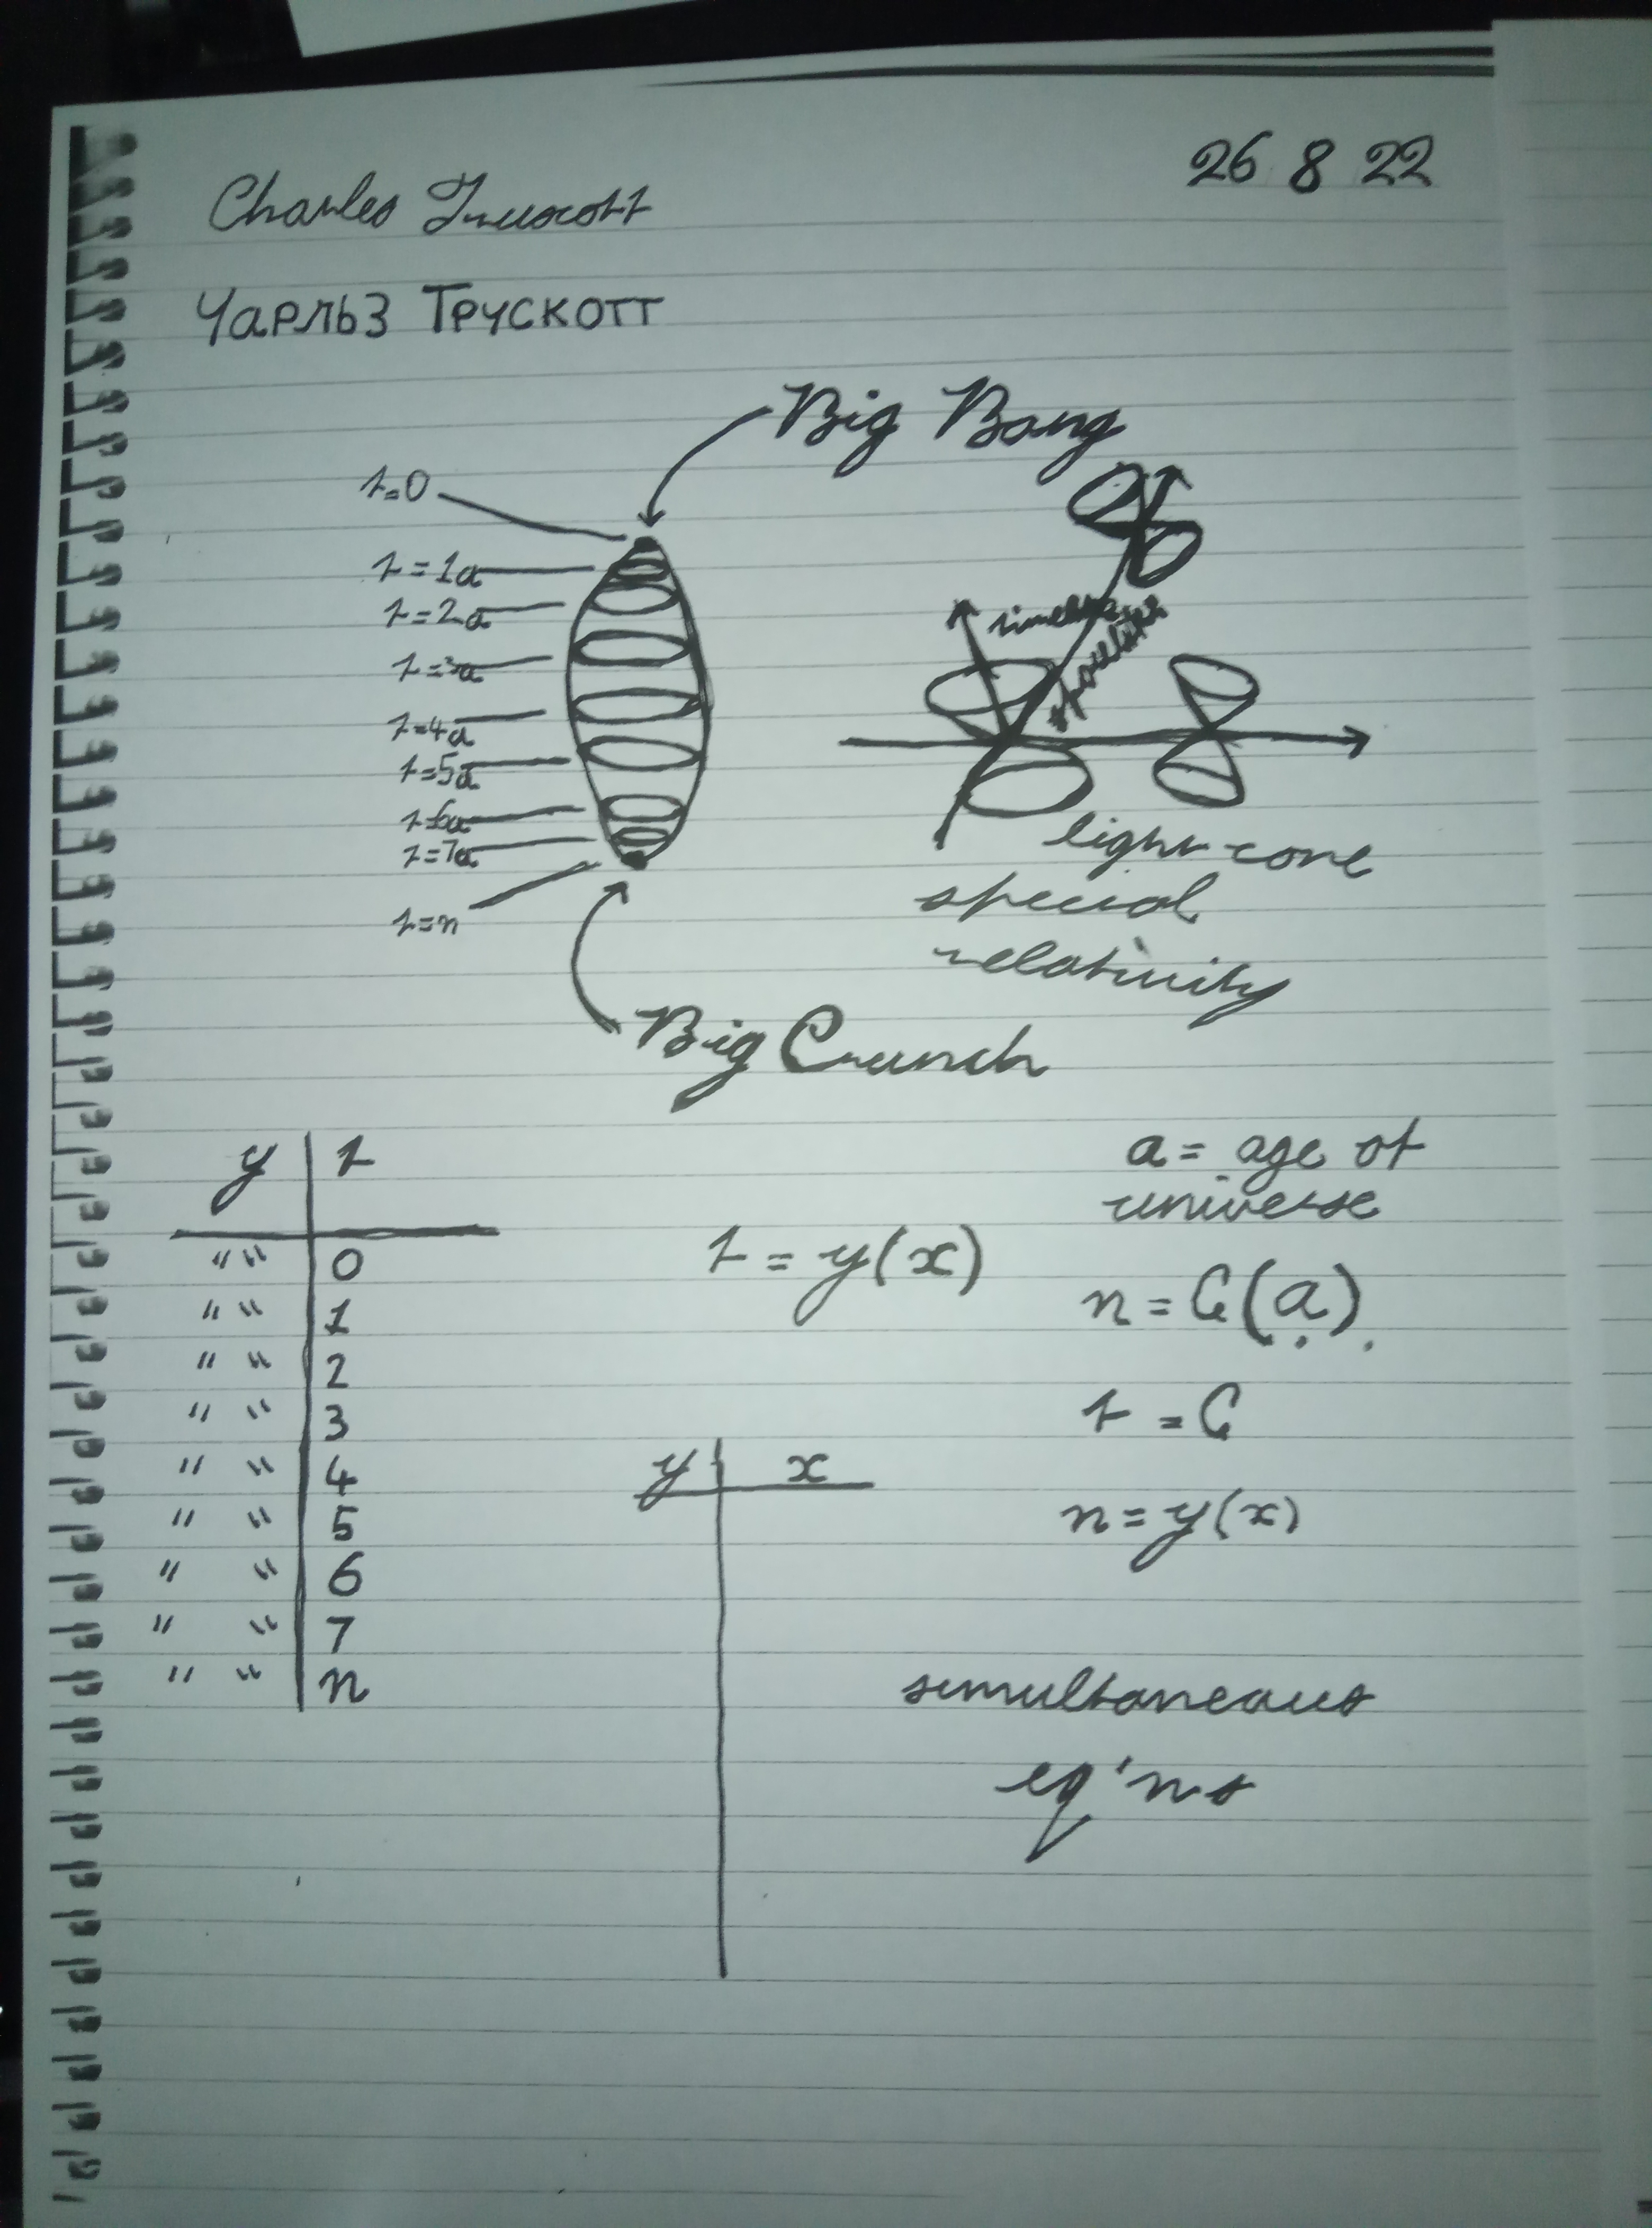 26 8 22
Charles Truscott
Чарльз Трускотт
Big Bang
t=0
t=1a
t=2a
t=3a
t=4a
t=5a
t=6a
t=7a
t=n
timelike
spacelike
light cone
special
relativity
Big Crunch
y t
"" 0
"" 1
"" 2
"" 3
"" 4
"" 5
"" 6
"" 7
"" n
t = y(x)
y x
a = age of
universe
n = C(a)
t = C
n = y(x)
simultaneous
eq'ns